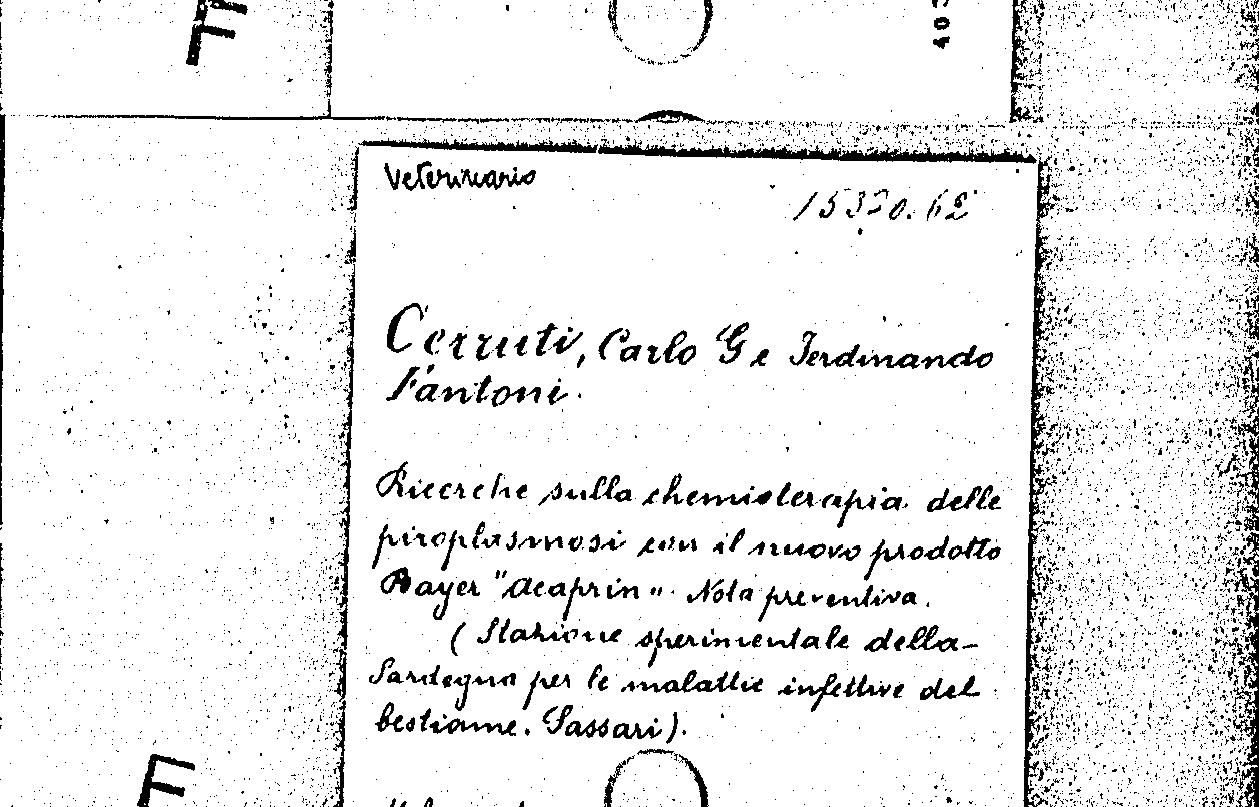 F
403
Veterinario
15320.62
Cerruti, Carlo G e Ferdinando
Fantoni.
Ricerche sulla chemioterapia delle
piroplasmosi con il nuovo prodotto
Bayer "Acaprin". Nota preventiva.
( Stazione sperimentale della
Sardegna per le malattie infettive del
bestiame. Sassari).
F